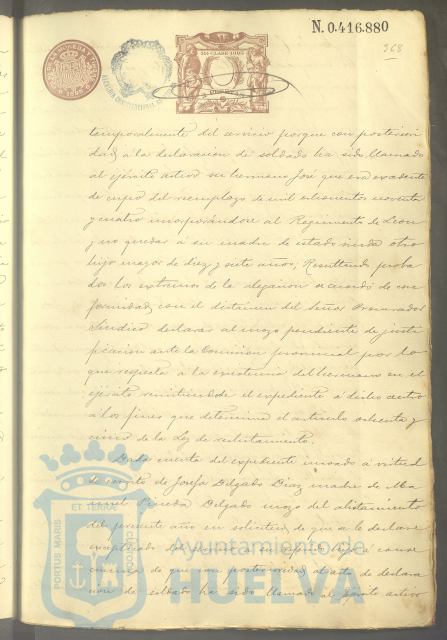 N. 0.416.880
368
11ª CLASE 1895
temporalmente del servicio porque con posteriori
dad á la declaracion de soldado ha sido llamado
al ejército activo su hermano José que era excedente
de cupo del reemplazo de mil ochocientos noventa
y cuatro incorporándose al Regimiento de Leon
y no quedar á su madre de estado viuda otro
hijo mayor de diez y siete años, Resultando proba
dos los extremos de la alegacion se acuerdo de con
formidad con el dictamen del Señor Procurador
Síndico declarar al mozo pendiente de justi
ficacion ante la Comision provincial por lo
que respecta á la existencia del hermano en el
ejército remitiendose el expediente á dicho centro
á los fines que determina el artículo sesenta y
cinco de la Ley de reclutamiento.
Dada cuenta del expediente incoado á virtud
de escrito de Josefa Delgado Diaz madre de Ma
nuel Pineda Delgado mozo del alistamiento
del presente año en solicitud de que se le declare
exceptuado del servicio
de que con posterioridad al acto de declara
cion de soldado ha sido llamado al ejército activo
PORTUS MARIS
ET TERRAE
CUSTODIA
Ayuntamiento de
HUELVA